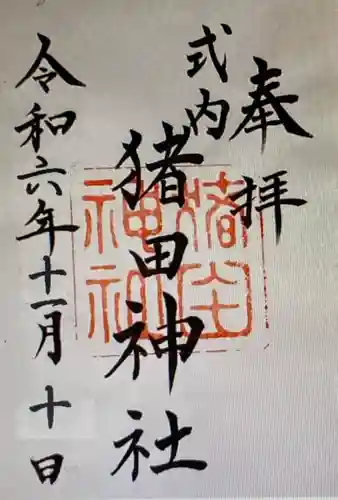 奉拝
式内
猪田神社
猪田神社
令和六年十一月十日